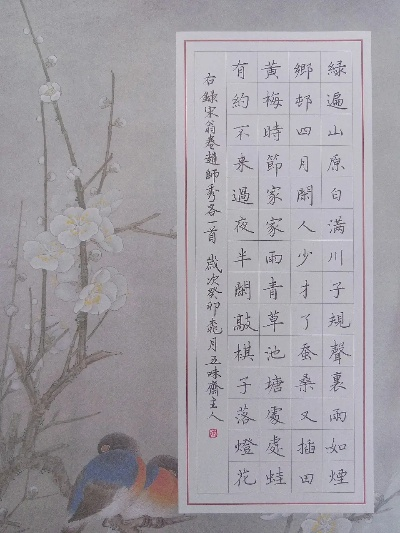 綠遍山原白滿川子規聲裏雨如煙
鄉邨四月閑人少才了蚕桑又插田
黃梅時節家家雨青草池塘處處蛙
有約不来過夜半閑敲棋子落燈花
右録宋翁卷趙師秀各一首 歲次癸卯桃月五味齋主人